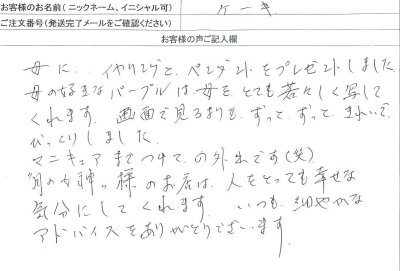 お客様のお名前(ニックネーム、イニシャル可)
ケーキ
ご注文番号(発送完了メールをご確認ください)
お客様の声ご記入欄
母に...イヤリングと、ペンダントをプレゼントしました
母の好きなパープルは、母を、とても若々しく写して
くれます。画面で見るよりも、ずっと、ずっと、きれいで、
びっくりしました。
マニキュアまでつけて、の外出です(笑)
"月の女神"様のお店は、人をとっても幸せな
気分にしてくれます。いつも、細やかな
アドバイスをありがとうございます。